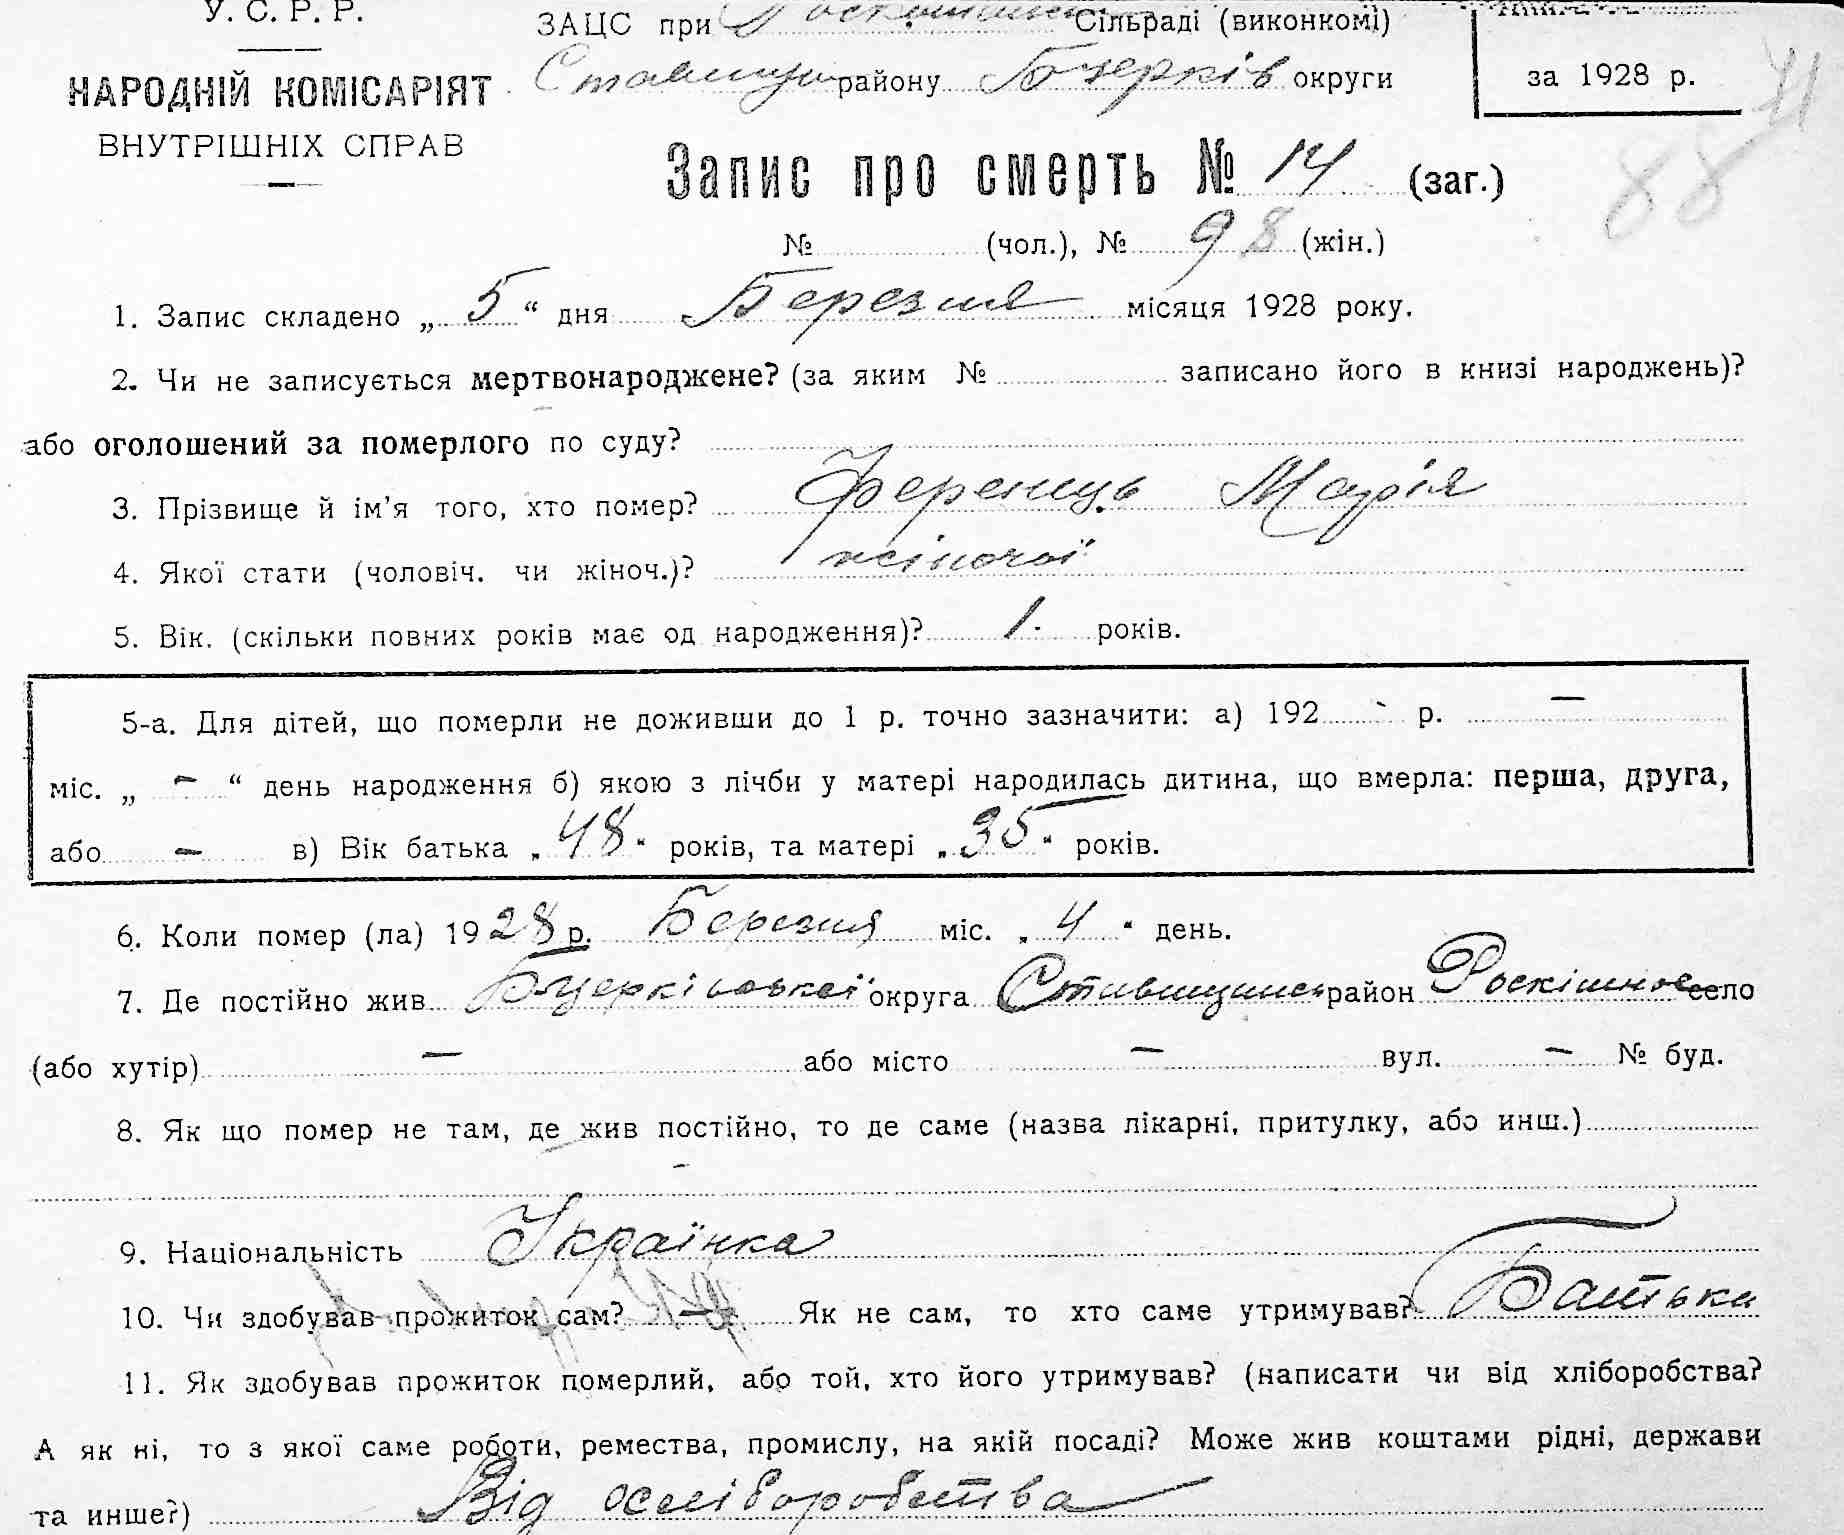 У. С. Р. Р.
НАРОДНІЙ КОМІСАРІЯТ
ВНУТРІШНІХ СПРАВ
ЗАЦС при Сільраді (виконкомі)
району Б церків округи
за 1928 р.
71
88
Запис про смерть № 14 (заг.)
№ (чол.), № 9 8 (жін.)
1. Запис складено „ 5 “ дня Березня місяця 1928 року.
2. Чи не записується мертвонароджене? (за яким № записано його в книзі народжень)?
або оголошений за померлого по суду?
3. Прізвище й ім'я того, хто помер? Ференець Марія
4. Якої стати (чоловіч. чи жіноч.)? жіночої
5. Вік. (скільки повних років має од народження)? 1. років.
5-а. Для дітей, що померли не доживши до 1 р. точно зазначити: а) 192 - р. —
міс. „ — “ день народження б) якою з лічби у матері народилась дитина, що вмерла: перша, друга,
або — в) Вік батька „ 48 “ років, та матері „ 35 “ років.
6. Коли помер (ла) 1928 р. Березня міс. „ 4 “ день.
7. Де постійно жив Б-церківської округа Ставищанськ район Роскішное село
(або хутір) — або місто — вул. — № буд.
8. Як що помер не там, де жив постійно, то де саме (назва лікарні, притулку, або инш.)
—
9. Національність Українка
10. Чи здобував прожиток сам? — Як не сам, то хто саме утримував? Батьки
11. Як здобував прожиток померлий, або той, хто його утримував? (написати чи від хліборобства?
А як ні, то з якої саме роботи, ремества, промислу, на якій посаді? Може жив коштами рідні, держави
та инше?) Від хліборобства